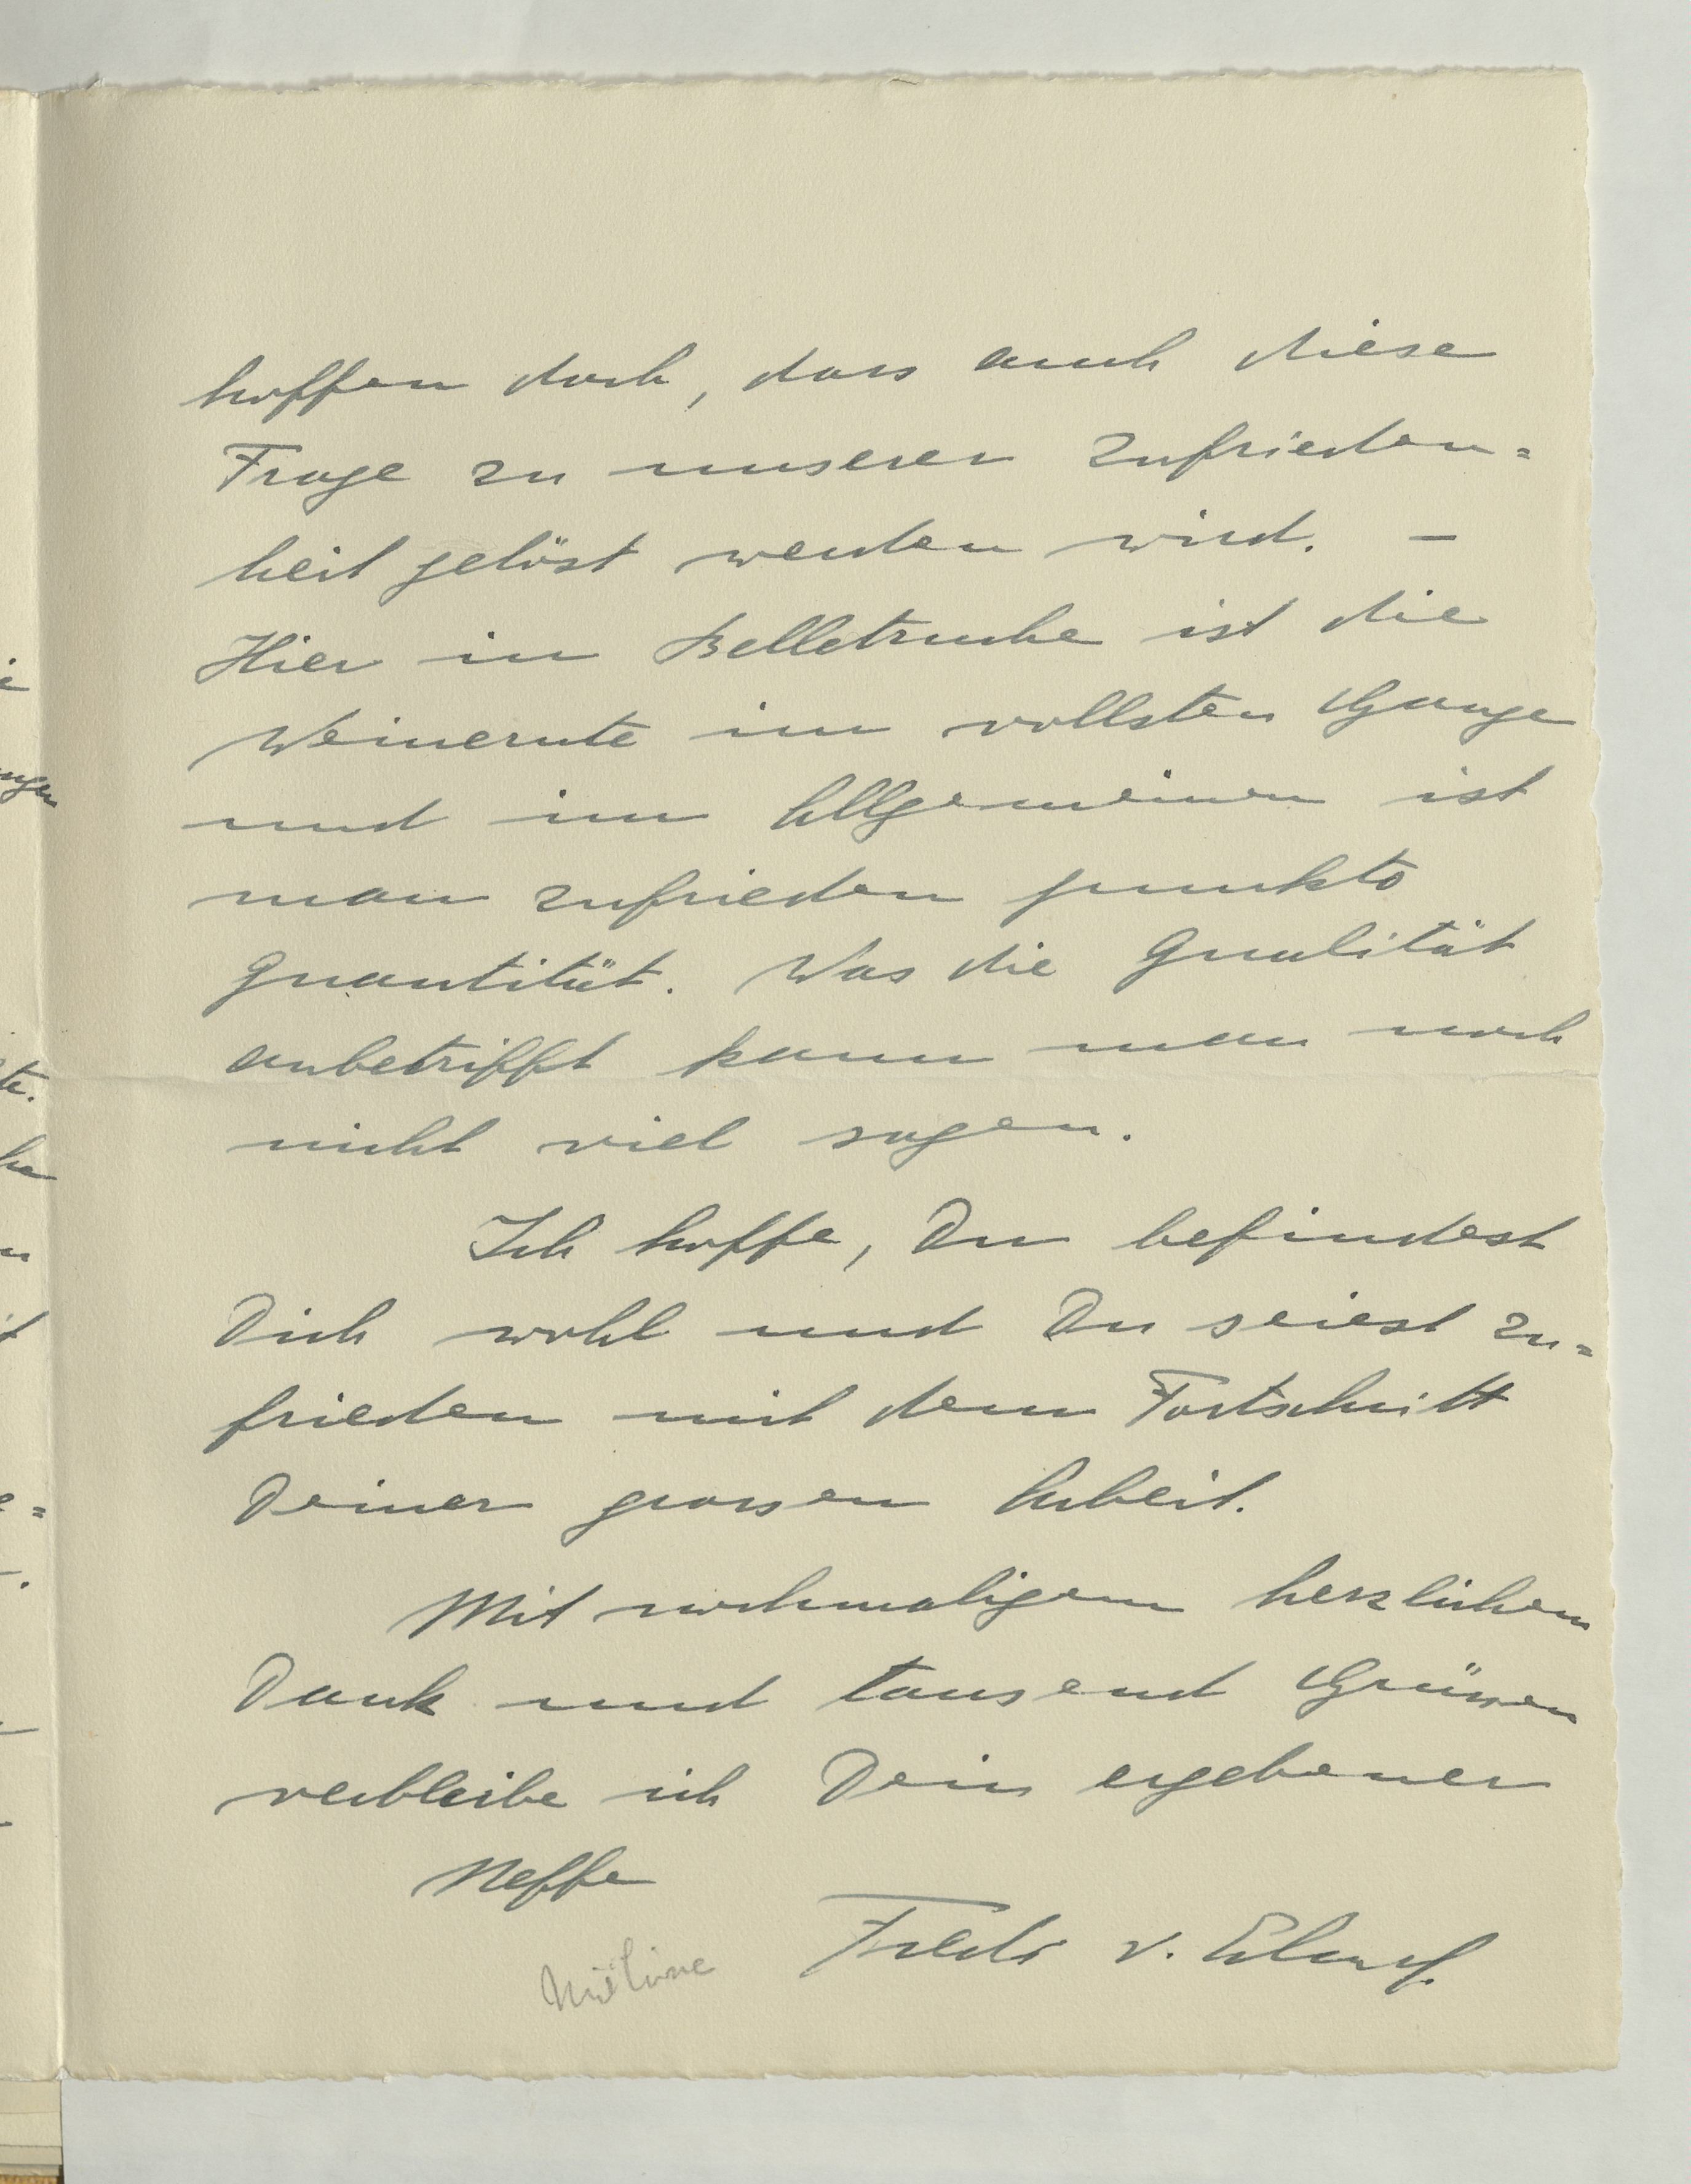 hoffen doch, dass auch diese
Frage zu unserer Zufrieden=
heit gelöst werden wird. –
Hier in Belletruche ist die
Weinernte im vollsten Gange
und im Allgemeinen ist
man zufrieden punkto
Quantität. Was die Qualität
anbetrifft kann man noch
nicht viel sagen.
Ich hoffe, Du befindest
Dich wohl und Du seiest zu=
frieden mit dem Fortschritt
Deiner grossen Arbeit.
Mit nochmaligem herzlichem
Dank und tausend Grüssen
verbleibe ich Dein ergebener
Neffe
v.